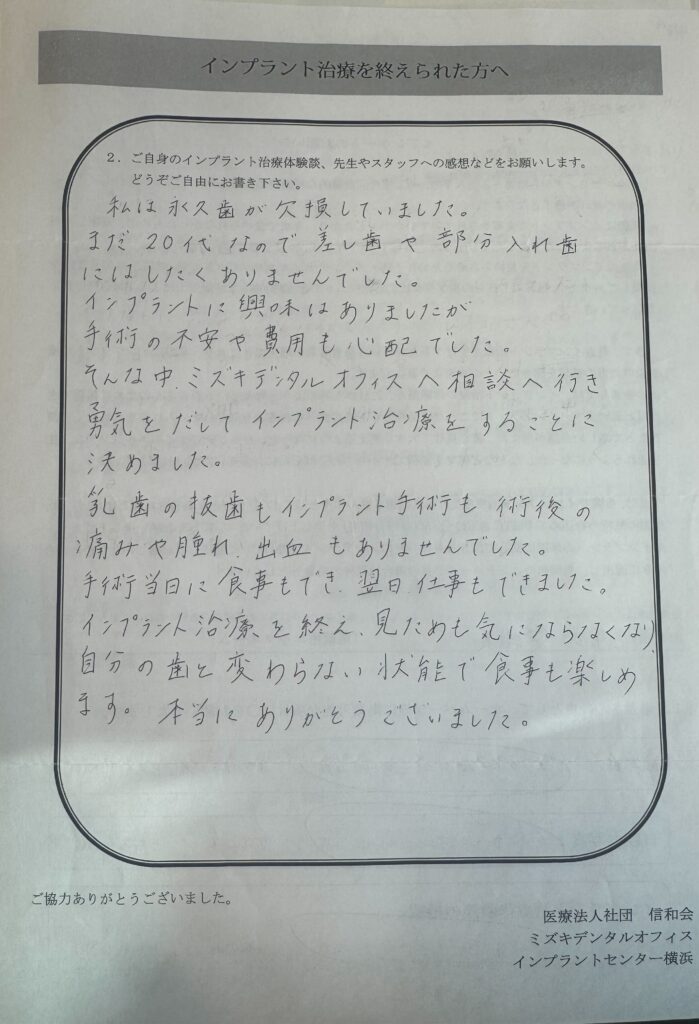 インプラント治療を終えられた方へ
2．ご自身のインプラント治療体験談、先生やスタッフへの感想などをお願いします。
どうぞご自由にお書き下さい。
私は永久歯が欠損していました。
まだ20代なので差し歯や部分入れ歯
にはしたくありませんでした。
インプラントに興味はありましたが
手術の不安や費用も心配でした。
そんな中、ミズキデンタルオフィスへ相談へ行き
勇気をだしてインプラント治療をすることに
決めました。
乳歯の抜歯もインプラント手術も術後の
痛みや腫れ、出血もありませんでした。
手術当日に食事もでき、翌日、仕事もできました。
インプラント治療を終え、見ためも気にならなくなり、
自分の歯と変わらない状態で食事も楽しめ
ます。本当にありがとうございました。
ご協力ありがとうございました。
医療法人社団　信和会
ミズキデンタルオフィス
インプラントセンター横浜